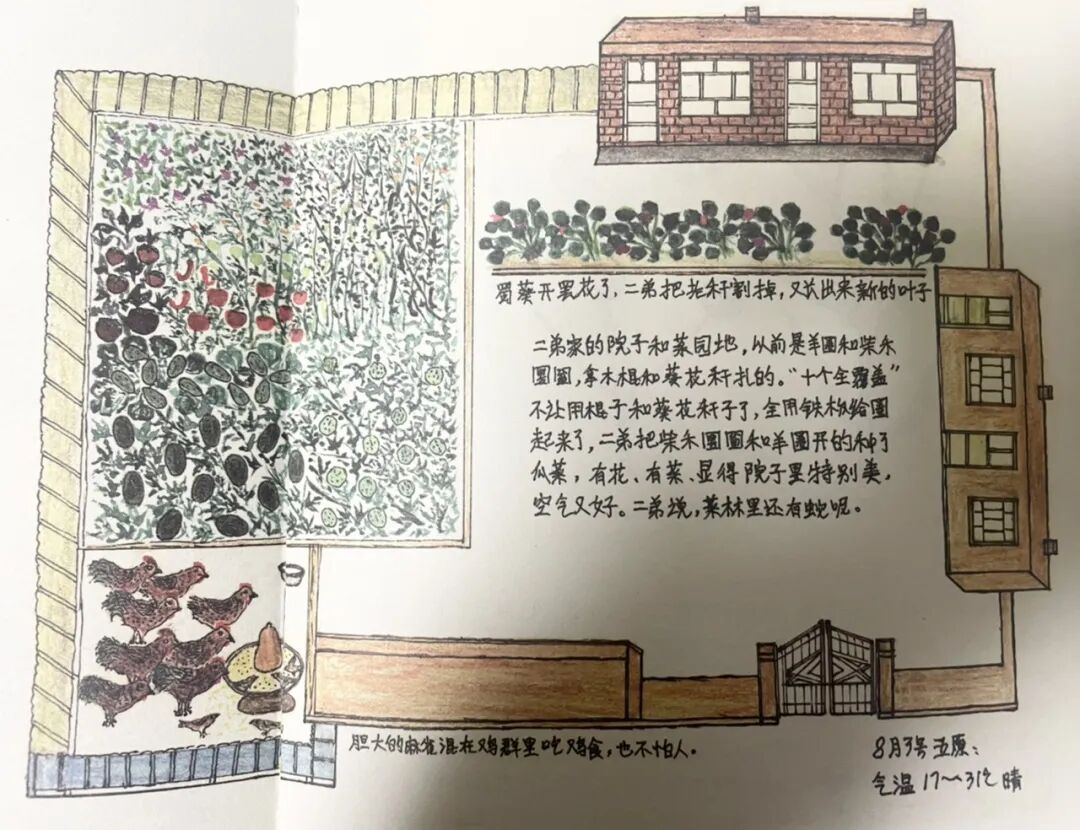 蜀葵开罢花了，二弟把老秆割掉，又长出来新的叶子
二弟家的院子和菜园地，以前是羊圈和柴禾
圐圙，拿木棍和葵花秆扎的。“十个全覆盖”
不让用棍子和葵花秆子了，全用铁板给圈
起来了，二弟把柴禾圐圙和羊圈开的种了
瓜菜，有花、有菜、显得院子里特别美，
空气又好。二弟说，菜林里还有蛇呢。
胆大的麻雀混在鸡群里吃鸡食，也不怕人。
8月3号五原：
气温17～31℃ 晴